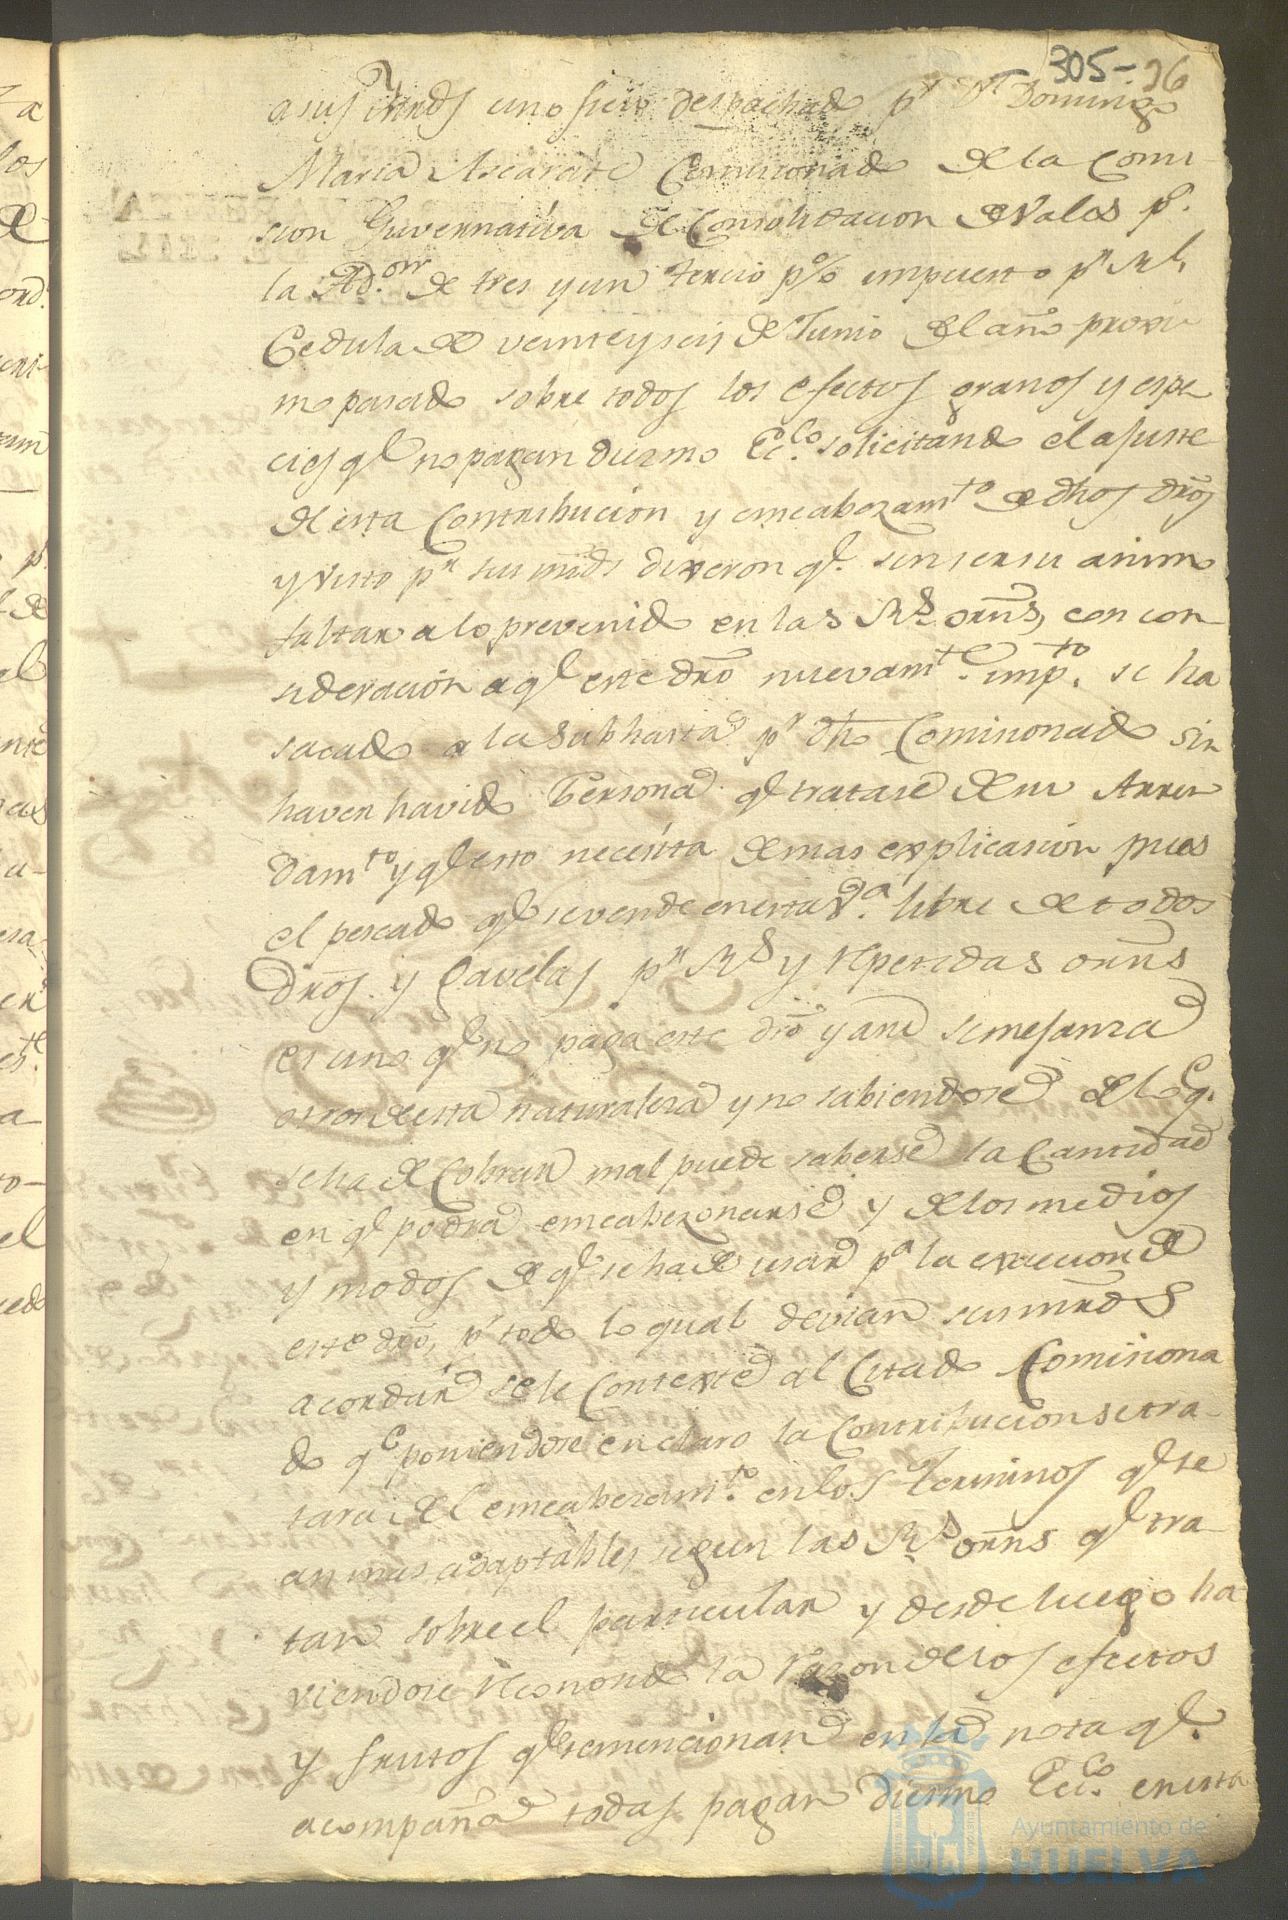 305-36
a sus mrds uno fecho despachado pr Dn Domingo
Maria Ascarate Comisionado de la Comi-
sion Guvernativa de Consolidacion de Vales pa.
la Ad.on de tres y un tercio p% impuesto pr Rl.
Cedula de veinte y seis de Junio del año proxi
mo pasado sobre todos los efectos granos y espe
cies ql no pagan diezmo Ecc.co solicitando el ajuste
de esta Contribucion y encabezam.to de dhos dros
y visto pr sus mrds dixeron ql. sin ser su animo
faltar a lo prevenido en las Rs. ordns, con con-
sideracion a ql este dro nuevam.te imp.to se ha
sacado a la Subhasta pr dho Comisionado sin
haver havido Persona ql tratase de su Arren
dam.to y ql esto necesita de mas explicacion pues
el pescado ql se vende en esta V.a libre de todos
dros y gavelas pr Rs y repetidas ordns
es uno ql no paga este dro y a su semejanza
otros de esta naturaleza y no sabiendose de lo q.e
se ha de Cobrar mal puede saberse la Cantidad
en ql podra encabezonarse y de los medios
y modos de ql se ha de usar pa la exaccion de
este dro, pr todo lo qual devian sus mrds
acordar se le Conteste al Citado Comisiona
do qe poniendose en claro la Contribucion se tra-
tara del encabezam.to en los terminos ql se
an mas adaptables segun las Rs ordns ql tra-
tan sobre el particular y desde luego ha
viendose reconocido la razon de los efectos
y frutos ql se mencionan en la nota ql.
acompaña todas pagan Diezmo Ecc.co en esta
Ayuntamiento de
HUELVA